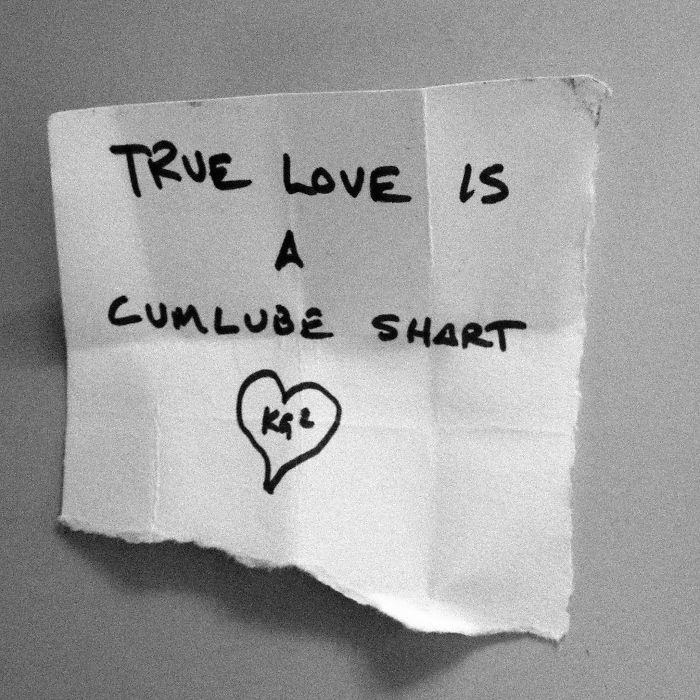 TRUE LOVE IS
A
CUMLUBE SHART
KG²